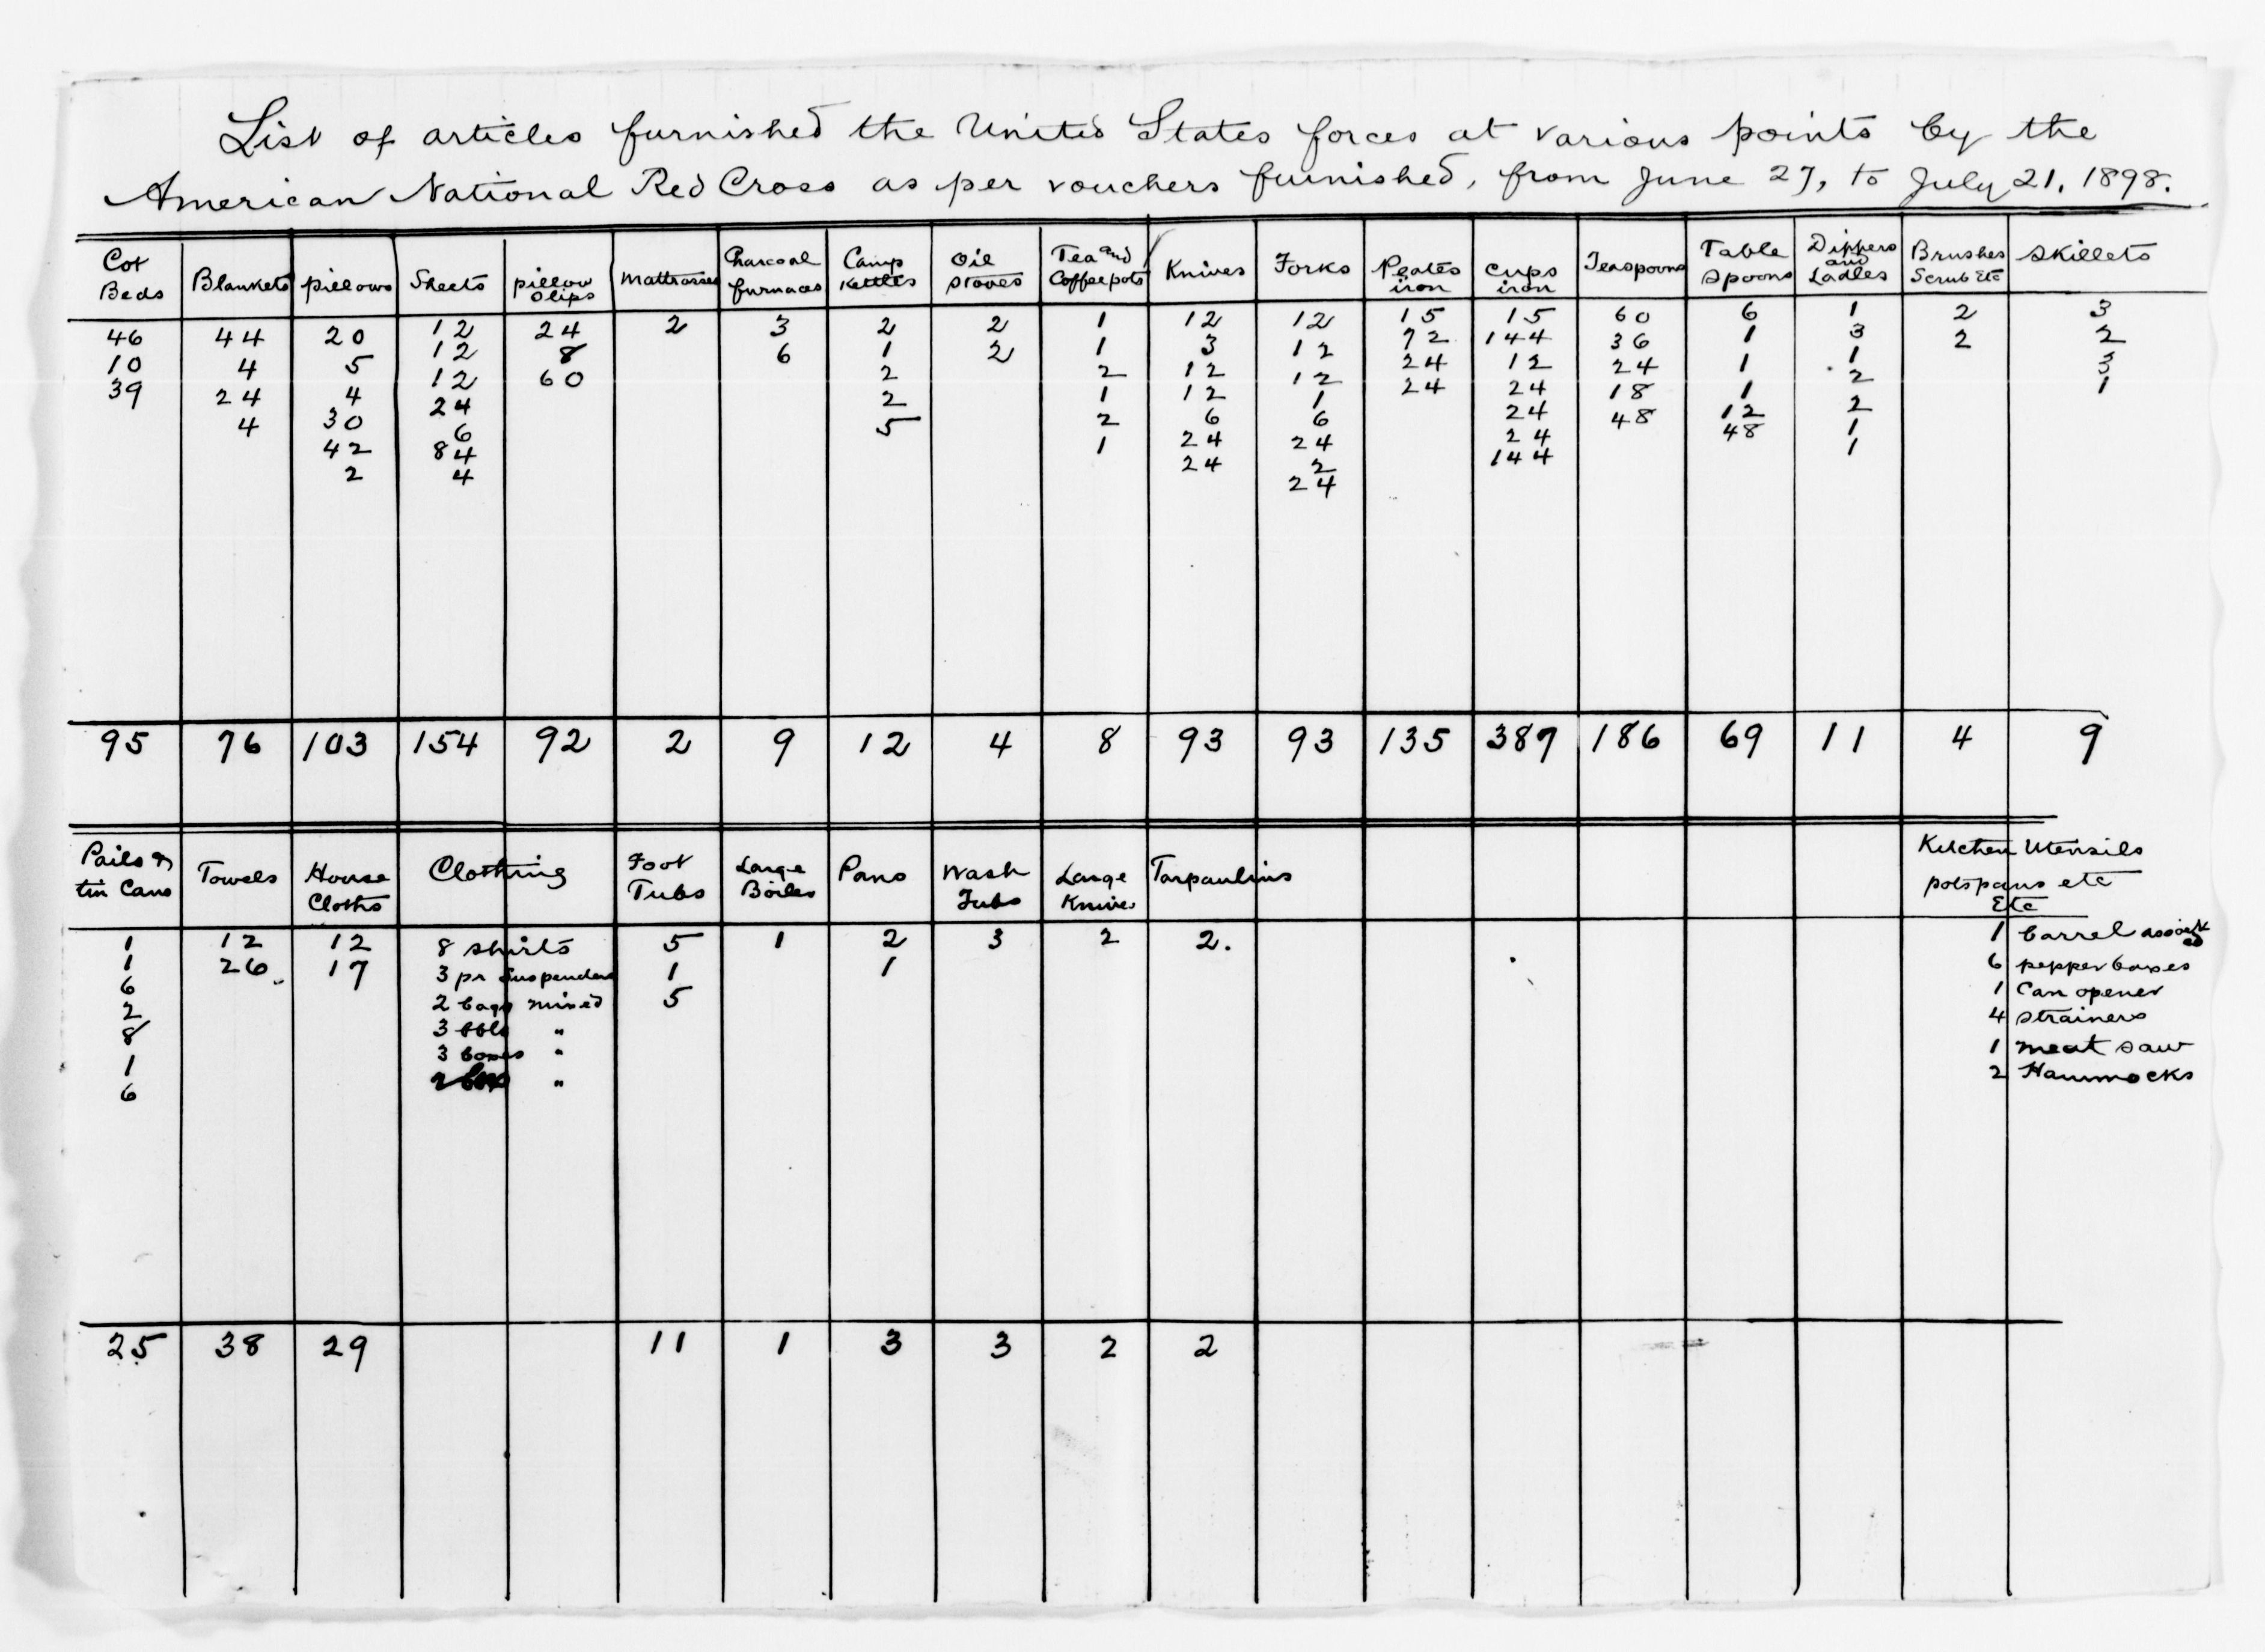 List of articles furnished the United States forces at various points by the
American National Red Cross as per vouchers furnished, from June 27, to July 21, 1898.
Cot Beds | Blankets | pillows | Sheets | pillow slips | mattrasses | Charcoal furnaces | Camp Kettles | Oil stoves | Tea and Coffeepots | Knives | Forks | Plates iron | cups iron | Teaspoons | Table spoons | Dippers and Ladles | Brushes Scrub Etc | skillets
46 | 44 | 20 | 12 | 24 | 2 | 3 | 2 | 2 | 1 | 12 | 12 | 15 | 15 | 60 | 6 | 1 | 2 | 3
10 | 4 | 5 | 12 | 8 | | 6 | 1 | 2 | 1 | 3 | 12 | 72 | 144 | 36 | 1 | 3 | 2 | 2
39 | 24 | 4 | 12 | 60 | | | 2 | | 2 | 12 | 12 | 24 | 12 | 24 | 1 | 1 | | 3
| 4 | 30 | 24 | | | | 2 | | 1 | 12 | 1 | 24 | 24 | 18 | 1 | 2 | | 1
| | 42 | 6 | | | | 5 | | 2 | 6 | 6 | | 24 | 48 | 12 | 2
| | 2 | 84 | | | | | | 1 | 24 | 24 | | 24 | | 48 | 1
| | | 4 | | | | | | | 24 | 2 | | 144 | | | 1
| | | | | | | | | | | 24
95 | 76 | 103 | 154 | 92 | 2 | 9 | 12 | 4 | 8 | 93 | 93 | 135 | 387 | 186 | 69 | 11 | 4 | 9
Pails & tin Cans | Towels | House Cloths | Clothing | Foot Tubs | Large Boiler | Pans | Wash Tubs | Large Knives | Tarpaulins | Kitchen Utensils pots pans etc Etc
1 | 12 | 12 | 8 shirts | 5 | 1 | 2 | 3 | 2 | 2. | 1 barrel
1 | 26 | 17 | 3 pr Suspenders | 1 | | 1 | | | | 6 pepper boxes
6 | | | 2 bags mixed | 5 | | | | | | 1 Can opener
2 | | | 3 bbls " | | | | | | | 4 strainers
8 | | | 3 boxes " | | | | | | | 1 meat saw
1 | | | " | | | | | | | 2 Hammocks
6
25 | 38 | 29 | | 11 | 1 | 3 | 3 | 2 | 2